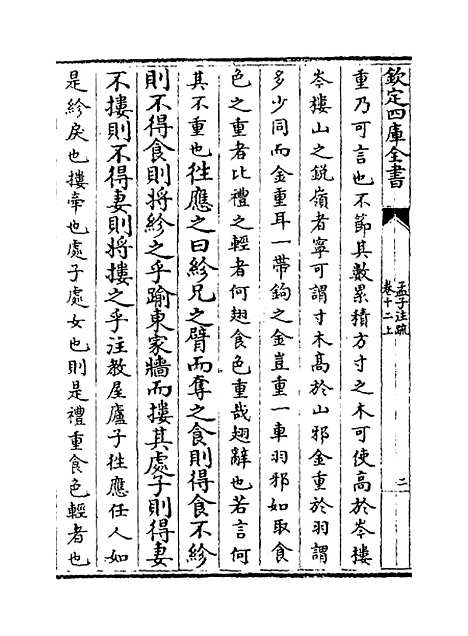 欽定四庫全書
孟子注疏
卷十二上
二
重乃可言也不節其數累積方寸之木可使高於岑樓
岑樓山之鋭嶺者寧可謂寸木髙於山邪金重於羽謂
多少同而金重耳一帶鉤之金豈重一車羽邪如取食
色之重者比禮之輕者何翅食色重哉翅辭也若言何
其不重也徃應之曰紾兄之臂而奪之食則得食不紾
則不得食則將紾之乎踰東家牆而摟其處子則得妻
不摟則不得妻則將摟之乎注教屋廬子徃應任人如
是紾戾也摟牽也處子處女也則是禮重食色輕者也